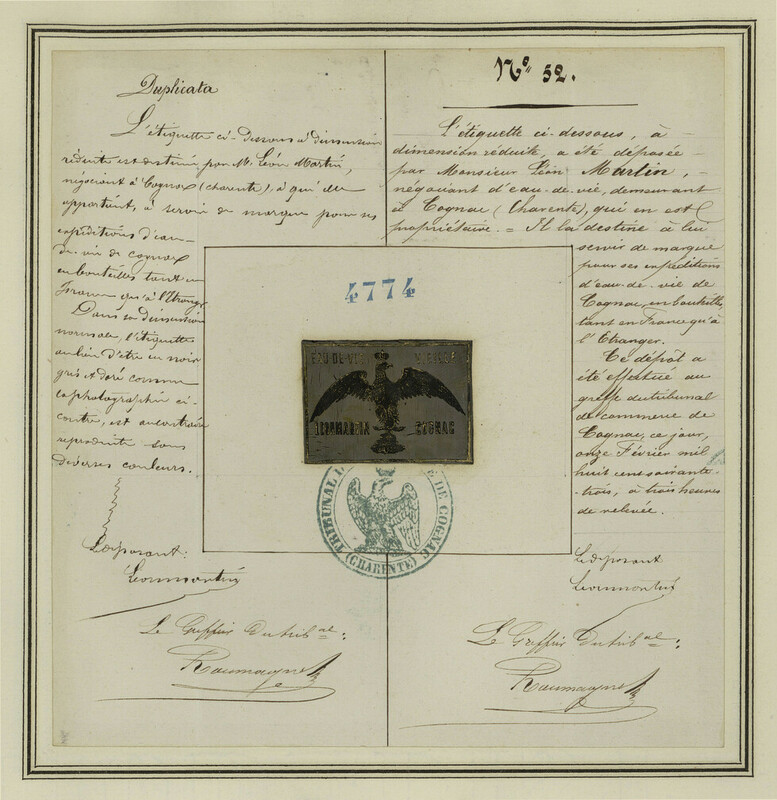 Duplicata
L'étiquette ci-dessous à dimension
réduite est destinée par Mr. Léon Martin,
négociant à Cognac (charente), à qui elle
appartient, à servir de marque pour ses
expéditions d'eau-
de-vie de cognac
en bouteilles tant en
France qu'à l'Etranger.
Dans sa dimension
normale, l'étiquette
au lieu d'être en noir
gris et doré comme
la photographie ci-
contre, est au contraire
reproduite sous
diverses couleurs.
Le déposant:
Leon martin
Le Greffier du trib.al:
Roumagne
No 52.
L'étiquette ci-dessous, à
dimension réduite, a été déposée
par Monsieur Léon Martin,
négociant d'eau-de-vie, demeurant
à Cognac (Charente), qui en est
propriétaire. = Il la destine à lui
servir de marque
pour ses expéditions
d'eau-de-vie de
Cognac, en bouteilles,
tant en France qu'à
l'Etranger.
Ce dépôt a
été effectué au
greffe du tribunal
de commerce de
Cognac, ce jour,
onze Février mil
huit cent soixante-
trois, à trois heures
de relevée.
Le déposant
Leon martin
Le Greffier du trib.al:
Roumagne
4774
EAU-DE-VIE VIEILLE
COGNAC
TRIBUNAL DE COGNAC
(CHARENTE)